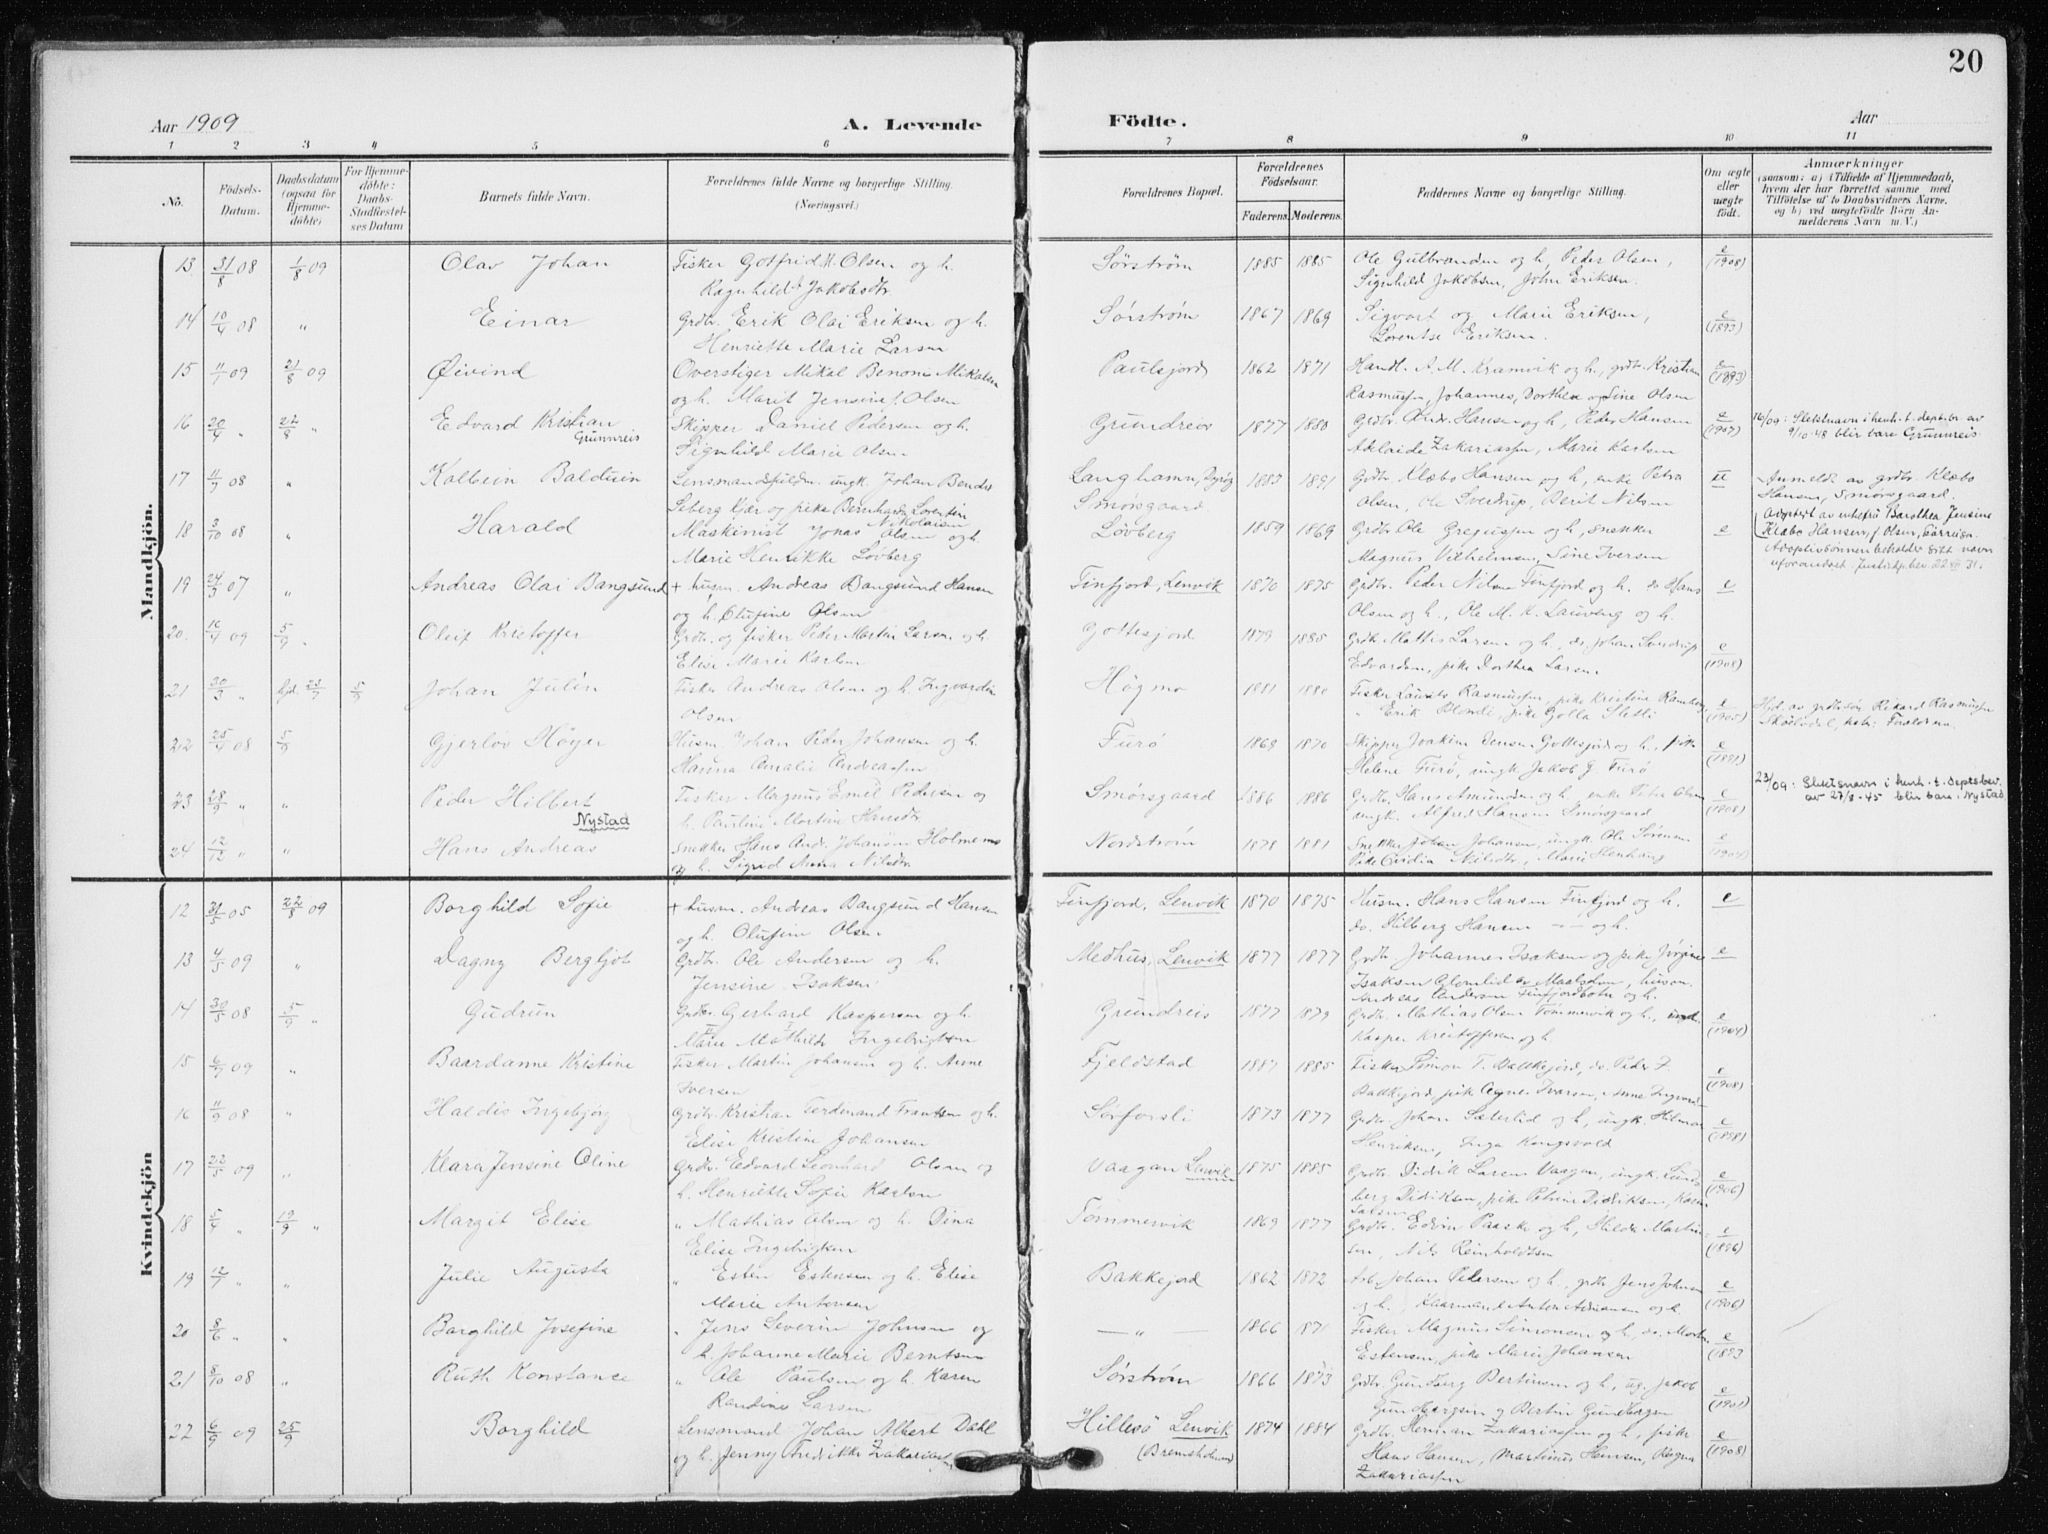 20
Aar 1909
A. Levende
Födte.
Aar
1 2 3 4 5 6 7 8 9 10 11
No.
Födsels-Datum.
Daabsdatum (ogsaa for Hjemmedöbte)
For Hjemmedöbte: Daabs-Stadfæstelses Datum
Barnets fulde Navn.
Forældrenes fulde Navne og borgerlige Stilling. (Næringsvei.)
Forældrenes Bopæl.
Forældrenes Födselsaar.
Faderens. Moderens.
Faddernes Navne og borgerlige Stilling.
Om ægte eller uægte födt.
Anmærkninger
(saasom: a) i Tilfælde af Hjemmedaab,
hvem der har forrettet samme med
Tilföielse af to Daabsvidners Navne.
og b) ved uægtefödte Börn An-
melderens Navn m. V.)
Mandkjön.
13 31/8 08 1/8 09 Olav Johan Fisker Gotfrid H. Olsen og h. Sørstrøm 1885 1885 Ole Gulbrandsen og h, Peder Olsen, e (1908)
Ragnhild Jakobsdtr. Signhild Jakobsen, John Eriksen.
14 10/4 08 " Einar Grdbr. Erik Olai Eriksen og h. Sørstrøm 1867 1869 Sigvart og Marie Eriksen, e (1893)
Henriette Marie Larsen Lorentse Eriksen.
15 11/1 09 21/8 09 Øivind Overstiger Mikal Benoni Mikalsen Paulsfjord 1862 1871 Handl. A. M. Kramvik og h, grdbr. Kristian e (1893)
og h. Marit Jensine f. Olsen Rasmussen, Johannes, Dorthea og Sine Olsen
16 20/4 " 22/8 " Edvard Kristian Grunnreis Skipper Daniel Pedersen og h. Grundreis 1877 1880 Grdbr. Andr. Hansen og h, Peder Hansen e (1907) 16/09: Slektsnavn i henh. t. dept.br. av
Signhild Marie Olsen Adelaide Zakariassen, Marie Karlsen 9/10-48 blir bare Grunnreis.
17 11/7 08 " Kolbein Balduin Lensmandsfuldm. ungk. Johan Bendix Langhamn, Dyrøy 1883 1891 Grdbr. Klæbo Hansen og h, enke Petra U Anmeldt av grdbr. Klæbo
Seberg Kjær og pike Bernharda Lorentin Nikolaisen Smörsgaard Olsen, Ole Sverdrup, Berit Nilsen Hansen, Smörsgaard.
18 3/10 08 " Harald Maskinist Jonas Olsen og h. Løvberg 1859 1869 Grdbr. Ole Gregiussen og h, snekker e Adoptert av enkefru Barothea Jensine
Marie Henrikke Lövberg Magnus Vilhelmsen, Sine Iversen Klæbo Hansen, f Olsen, Sörreisa.
Adoptivsönnen beholder sitt navn
uforandret. Justisdp.bev. 22/VII 31.
19 24/3 07 " Andreas Olai Bangsund + husm. Andreas Bangsund Hansen Finfjord, Lenvik 1870 1875 Grdbr. Peder Nilsen Finfjord og h. do Hans e
og h. Olufine Olsen Olsen og h., Ole M. K. Lauveng og h.
20. 16/4 09 5/9 " Oleif Kristoffer Grdbr. og fisker Peder Martin Larsen og h. Gottesjord 1879 1885 Grdbr. Mattis Larsen og h, do. Johan Sverdrup e (1908)
Elise Marie Karlsen Edvardsen, pike Dorthea Larsen
21 30/3 " hjd. 23/7 5/9 Johan Julin Fisker Andreas Olsen og h. Ingvardin Högmo 1881 1880 Fisker Laurits Rasmussen, pike Kristine Ramberg, e (1905)
Olsen " Erik Blondi, pike Golla Sletli
22 25/4 08 5/9 Gjerlöv Höyer Husm. Johan Peder Johansen og h. Furö 1869 1870 Skipper Joakim Jensen Gottesjord og h, e (1891)
Hanna Amalie Andreassen Helene Furö, ungk Jakob J. Furö
23 28/9 " " Peder Hilbert Nystad Fisker Magnus Emil Pedersen og Smörsgaard 1886 1886 Grdbr. Hans Amundsen og h, enke Petra Olsen e (1908) 23/09: Slektsnavn i henh. t. deptsbev.
h. Pauline Martine Hansdtr. ungk. Alfred Hansen Smörsgaard av 27/8-45 blir bare: Nystad.
24 12/12 " " Hans Andreas Snekker Hans Andr. Johansen Holmemo Nordström 1878 1881 Snekker Johan Johansen, ungk Ole Sörensen e (1904)
og h. Sigrid Anna Nilsdtr. Pike Ovidia Nilsdtr, Marie Stenhaug
Kvindekjön
12 31/5 05 22/8 09 Borghild Sofie + husm. Andreas Bangsund Hansen Finfjord, Lenvik 1870 1875 Husm. Hans Hansen Finfjord og h. e
og h. Olufine Olsen do. Hilberg Hansen — og h.
13 4/5 09 " Dagny Bergljot Grdbr. Ole Andersen og h. Medhus, Lenvik 1877 1877 Grdbr. Johannes Isaksen og pike Jörgine e
Jensine Isaksen Isaksen Glomlid av Maalsdalen, husm.
Andreas Andersen Finfjordbotn og h.
14 30/5 08 5/9 " Gudrun Grdbr. Gerhard Kaspersen og h. Grundreis 1877 1879 Grdbr. Mathias Olsen Tömmervik og h., e (1904)
Marie Mathilde Ingebrigtsen Kasper Kristoffersen og h
15 6/7 09 " Baardanne Kristine Fisker Martin Johansen og h. Anne Fjeldstad 1887 1885 Fisker Simon T. Bakkejord, do. Peder Z. e (1908)
Iversen Bakkejord, pike Agnes Ivarsen, Anne
16 11/9 08 " Haldis Ingebjörg Grdbr. Kristian Ferdinand Frantsen og h. Sörforsli 1873 1877 Grdbr. Johan Sæterlid og h, ungk. Hilmar e (1898)
Elise Kristine Johansen Henriksen, Inga Kongsvold
17 22/5 09 " Klara Jensine Oline Grdbr. Edvard Leonhard Olsen og Vaagan Lenvik 1875 1885 Grdbr. Didrik Larsen Vaagan, ungk. Lund- e (1906)
h. Henriette Sofie Karlsen berg Didriksen, pike Petrine Didriksen,
18 5/4 " 19/9 " Margit Elise " Mathias Olsen og h. Dina Tömmervik 1869 1877 Grdbr. Edvin Paaske og h, Hilda Martin- e (1896)
Elise Ingebrigtsen sen, Nils Reinholdtsen
19 12/7 " " Julie Augusta " Esten Estensen og h. Elise Bakkejord 1862 1872 Arb. Johan Petersen og h, grdbr Jens Johnsen e (1906)
Marie Antonsen og h, Kaarmand Anton Adriansen og h
20 8/6 " " Borghild Josefine " Jens Severin Johnsen og — " — 1866 1871 Fisker Magnus Simonsen og h, do. Morten e (1893
h. Johanne Marie Berntsen Estensen, pike Marie Johansen
21 8/10 08 " Ruth Konstance " Ole Paulsen og h. Karen Sörström 1866 1873 Grdbr. Gundberg Bertinsen og h, ug. Jakob e (1901)
Randine Larsen Gundbergsen og Bertin Gundbergsen
22 6/9 09 25/9 Borghild Lensmand Johan Albert Dahl Hillesö Lenvik 1874 1884 Grdbr. Herman Zakariassen og h, pike e (1908)
og h. Jenny Fredrikke Zakariassen (Bremsholmen) Hans Hansen, Martinus Hansen, Ragna
Zakariassen